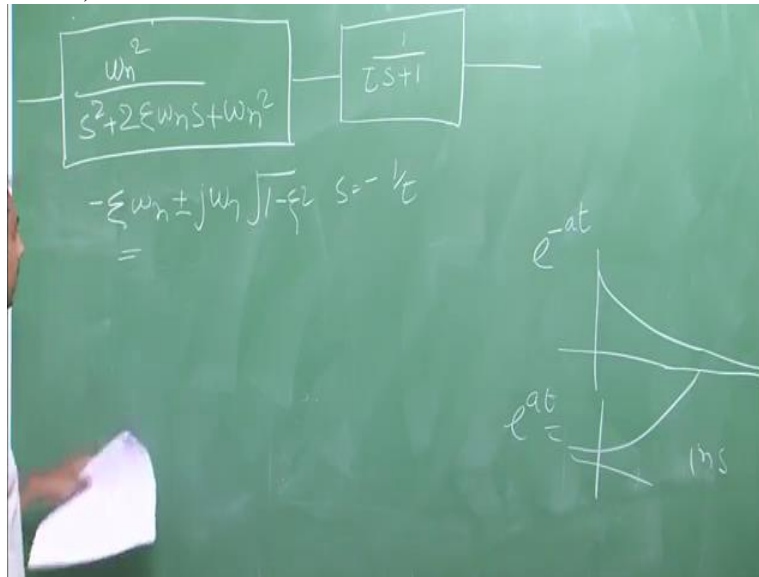 ωn²
s²+2ξωns+ωn²
1
τs+1
-ξωn±jωn√1-ξ2 s=-1/τ
=
e^-at
e^at